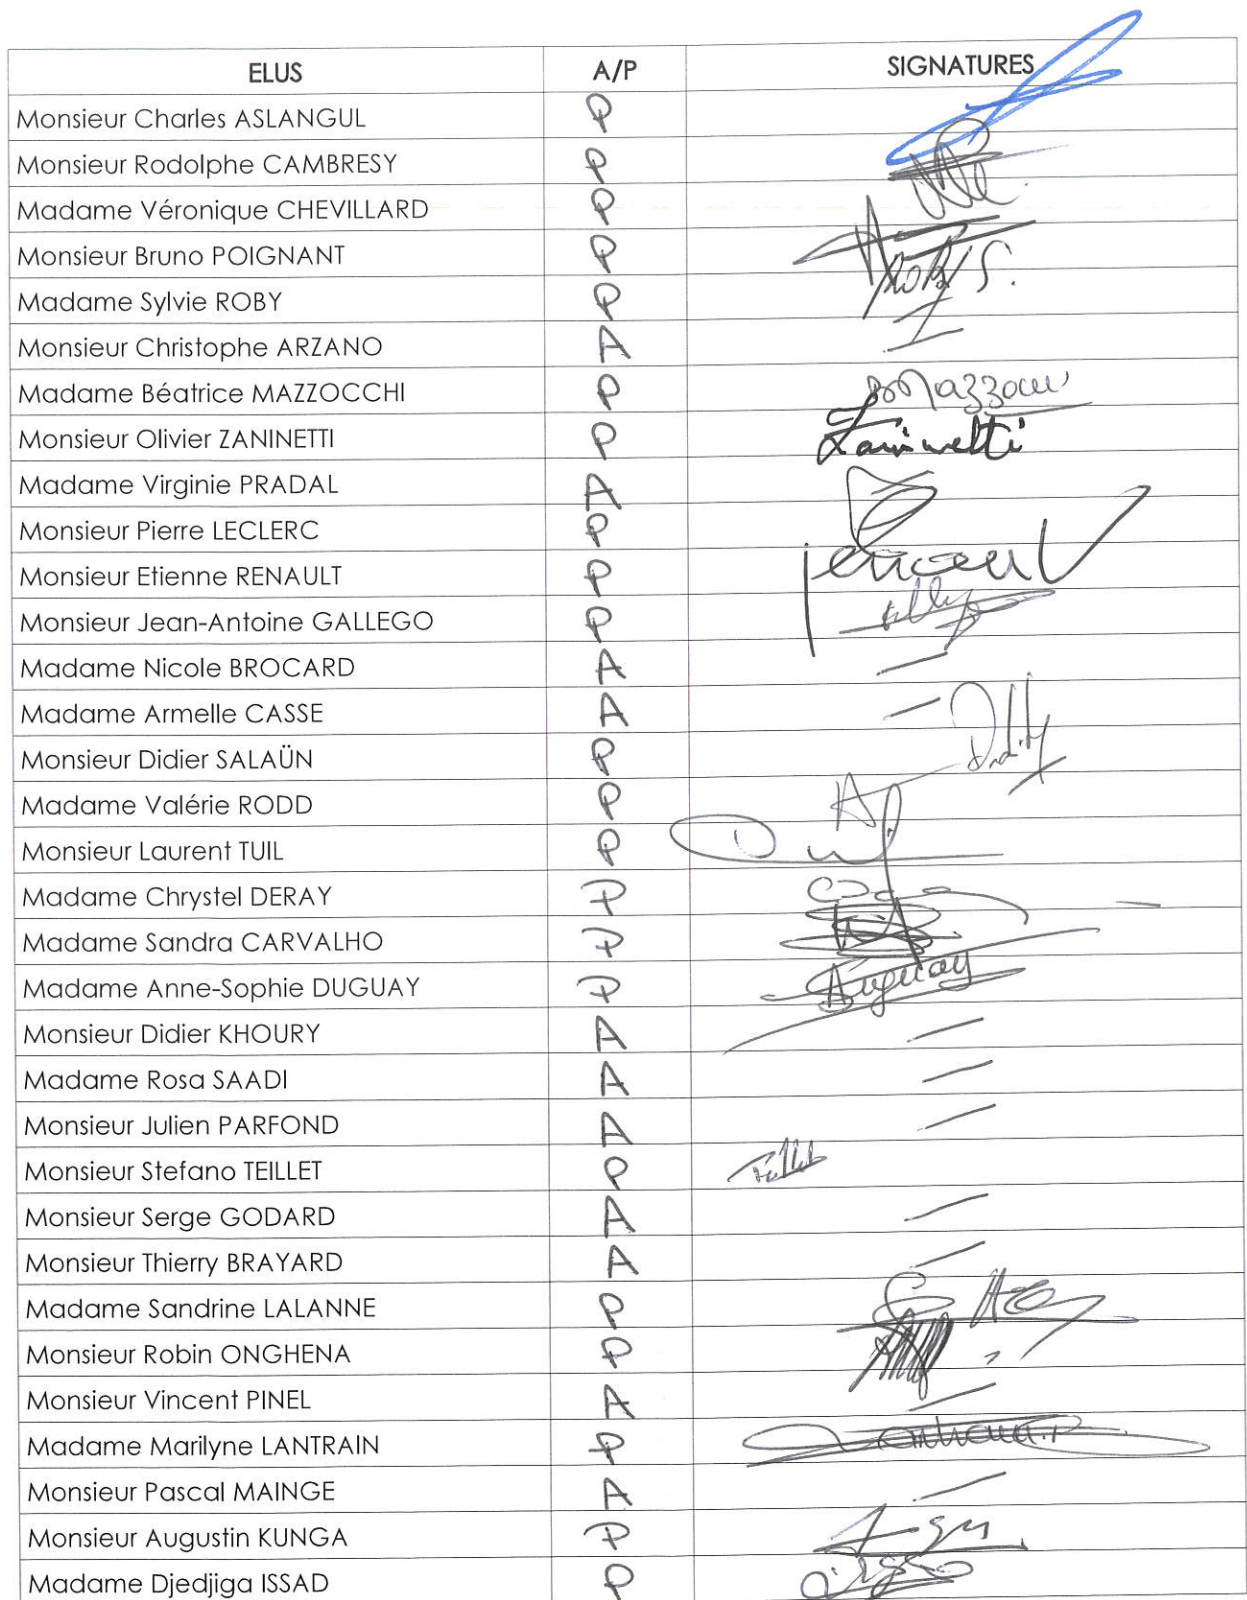 ELUS A/P SIGNATURES
Monsieur Charles ASLANGUL P
Monsieur Rodolphe CAMBRESY P
Madame Véronique CHEVILLARD P
Monsieur Bruno POIGNANT P
Madame Sylvie ROBY P Roby S.
Monsieur Christophe ARZANO A
Madame Béatrice MAZZOCCHI P
Monsieur Olivier ZANINETTI P Zaninetti
Madame Virginie PRADAL A
Monsieur Pierre LECLERC P
Monsieur Etienne RENAULT P
Monsieur Jean-Antoine GALLEGO P
Madame Nicole BROCARD A
Madame Armelle CASSE A
Monsieur Didier SALAÜN P
Madame Valérie RODD P
Monsieur Laurent TUIL P
Madame Chrystel DERAY P
Madame Sandra CARVALHO P
Madame Anne-Sophie DUGUAY P Duguay
Monsieur Didier KHOURY A
Madame Rosa SAADI A
Monsieur Julien PARFOND A
Monsieur Stefano TEILLET P
Monsieur Serge GODARD A
Monsieur Thierry BRAYARD A
Madame Sandrine LALANNE P
Monsieur Robin ONGHENA P
Monsieur Vincent PINEL A
Madame Marilyne LANTRAIN P
Monsieur Pascal MAINGE A
Monsieur Augustin KUNGA P
Madame Djedjiga ISSAD P